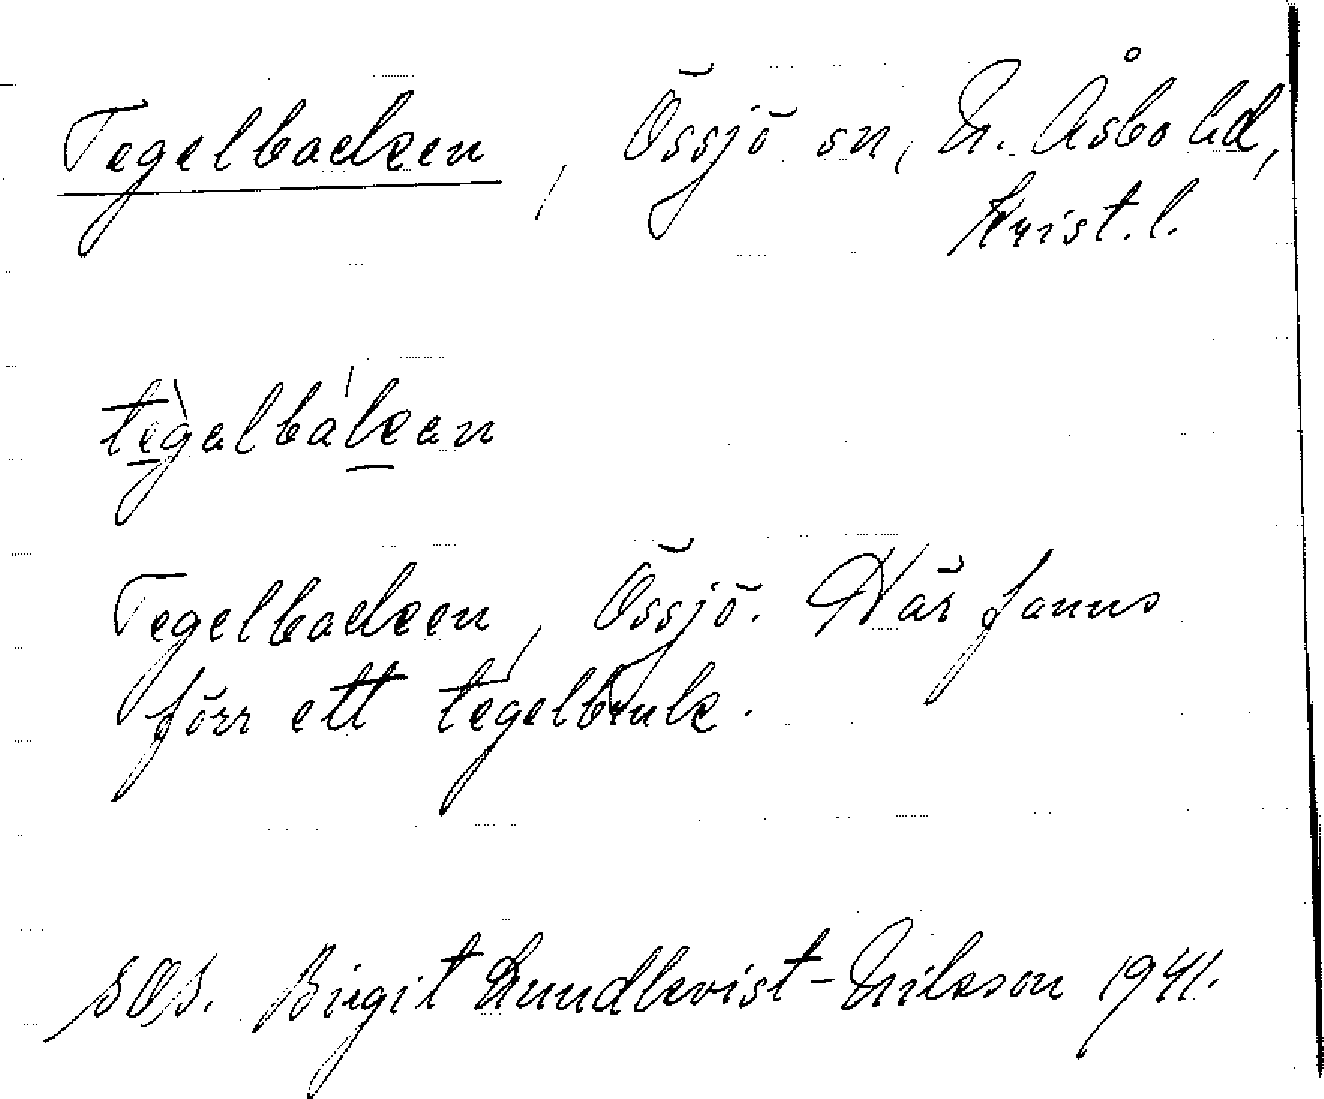 Tegelbacken, Össjö sn, N. Åsbo hd,
Krist. l.
tègalbákan
Tegelbacken, Össjö. Här fanns
förr ett tegelbruk.
Birgit Lundkvist-Nilsson 1941.